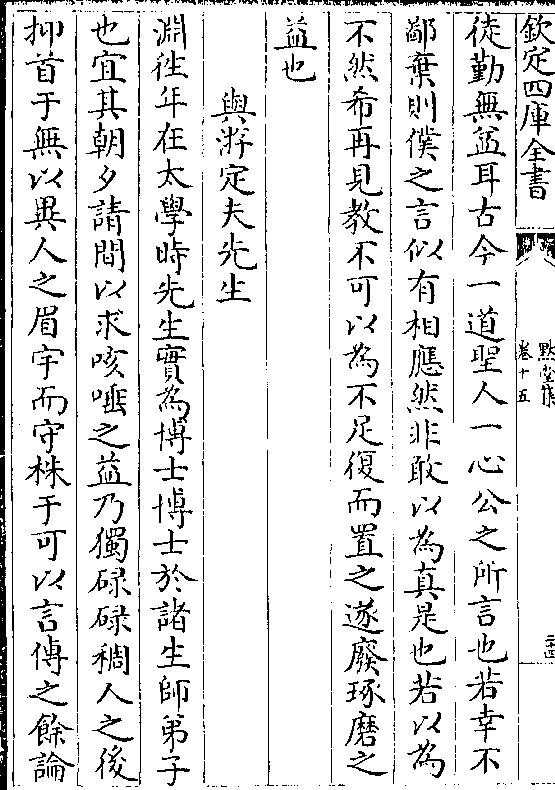 欽定四庫全書
默堂集
卷十五
二十四
徒勤無益耳古今一道聖人一心公之所言也若幸不
鄙棄則僕之言似有相應然非敢以為真是也若以為
不然希再見教不可以為不足復而置之遂廢琢磨之
益也
與游定夫先生
淵往年在太學時先生實為博士博士於諸生師弟子
也宜其朝夕請問以求咳唾之益乃獨碌碌稠人之後
抑首于無以異人之眉宇而守株于可以言傳之餘論